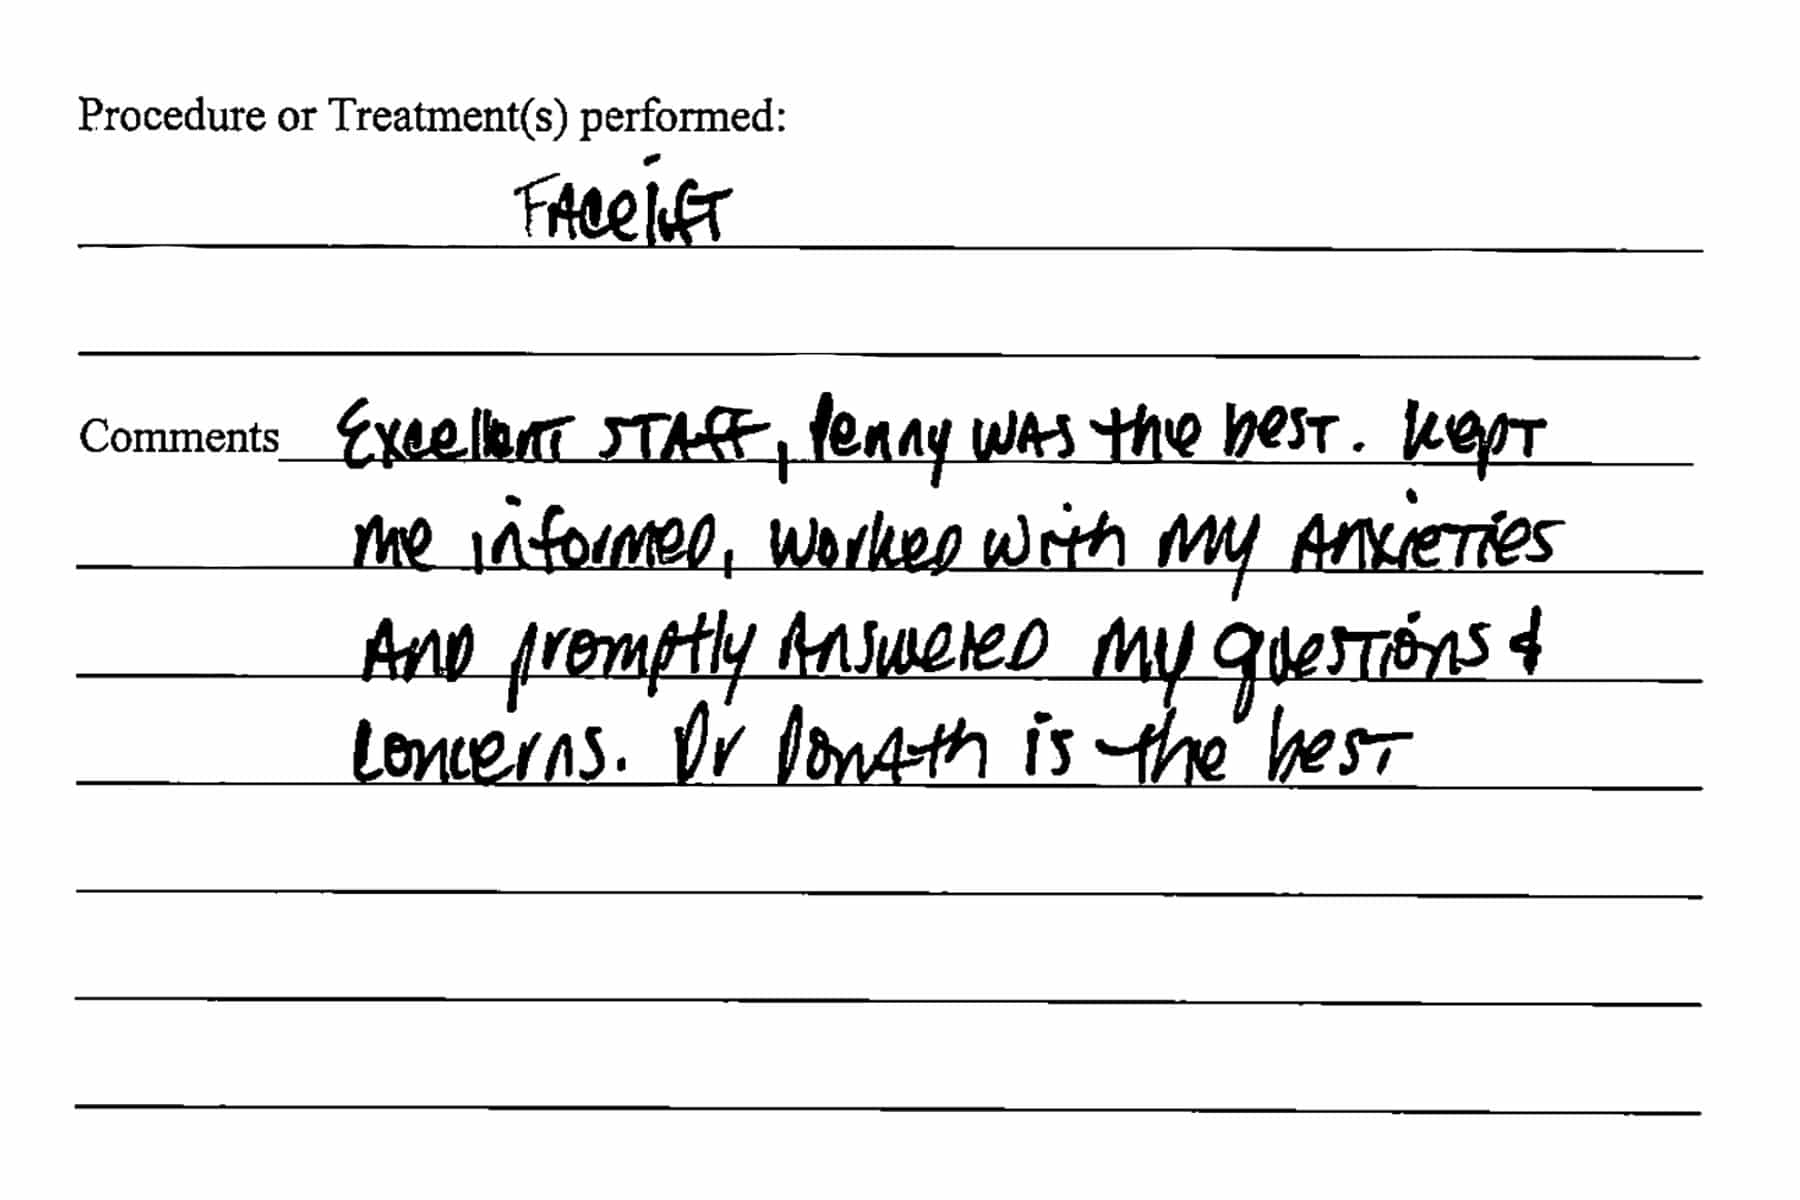 Procedure or Treatment(s) performed:
Facelift
Comments Excellent staff, Penny was the best. Kept
me informed, worked with my anxieties
and promptly answered my questions &
concerns. Dr Donath is the best